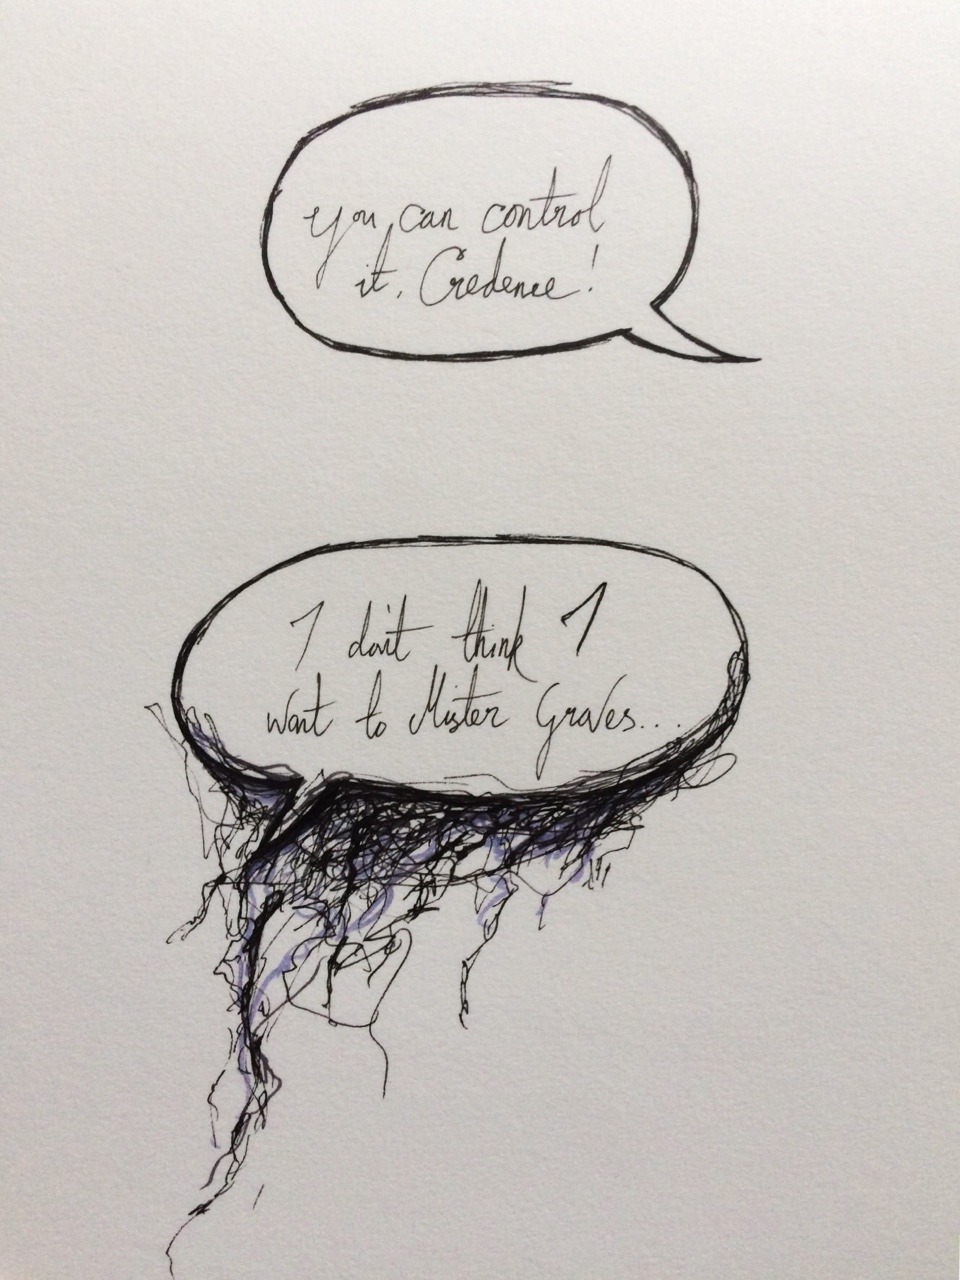 you can control
it, Credence!
I don't think I
want to Mister Graves...